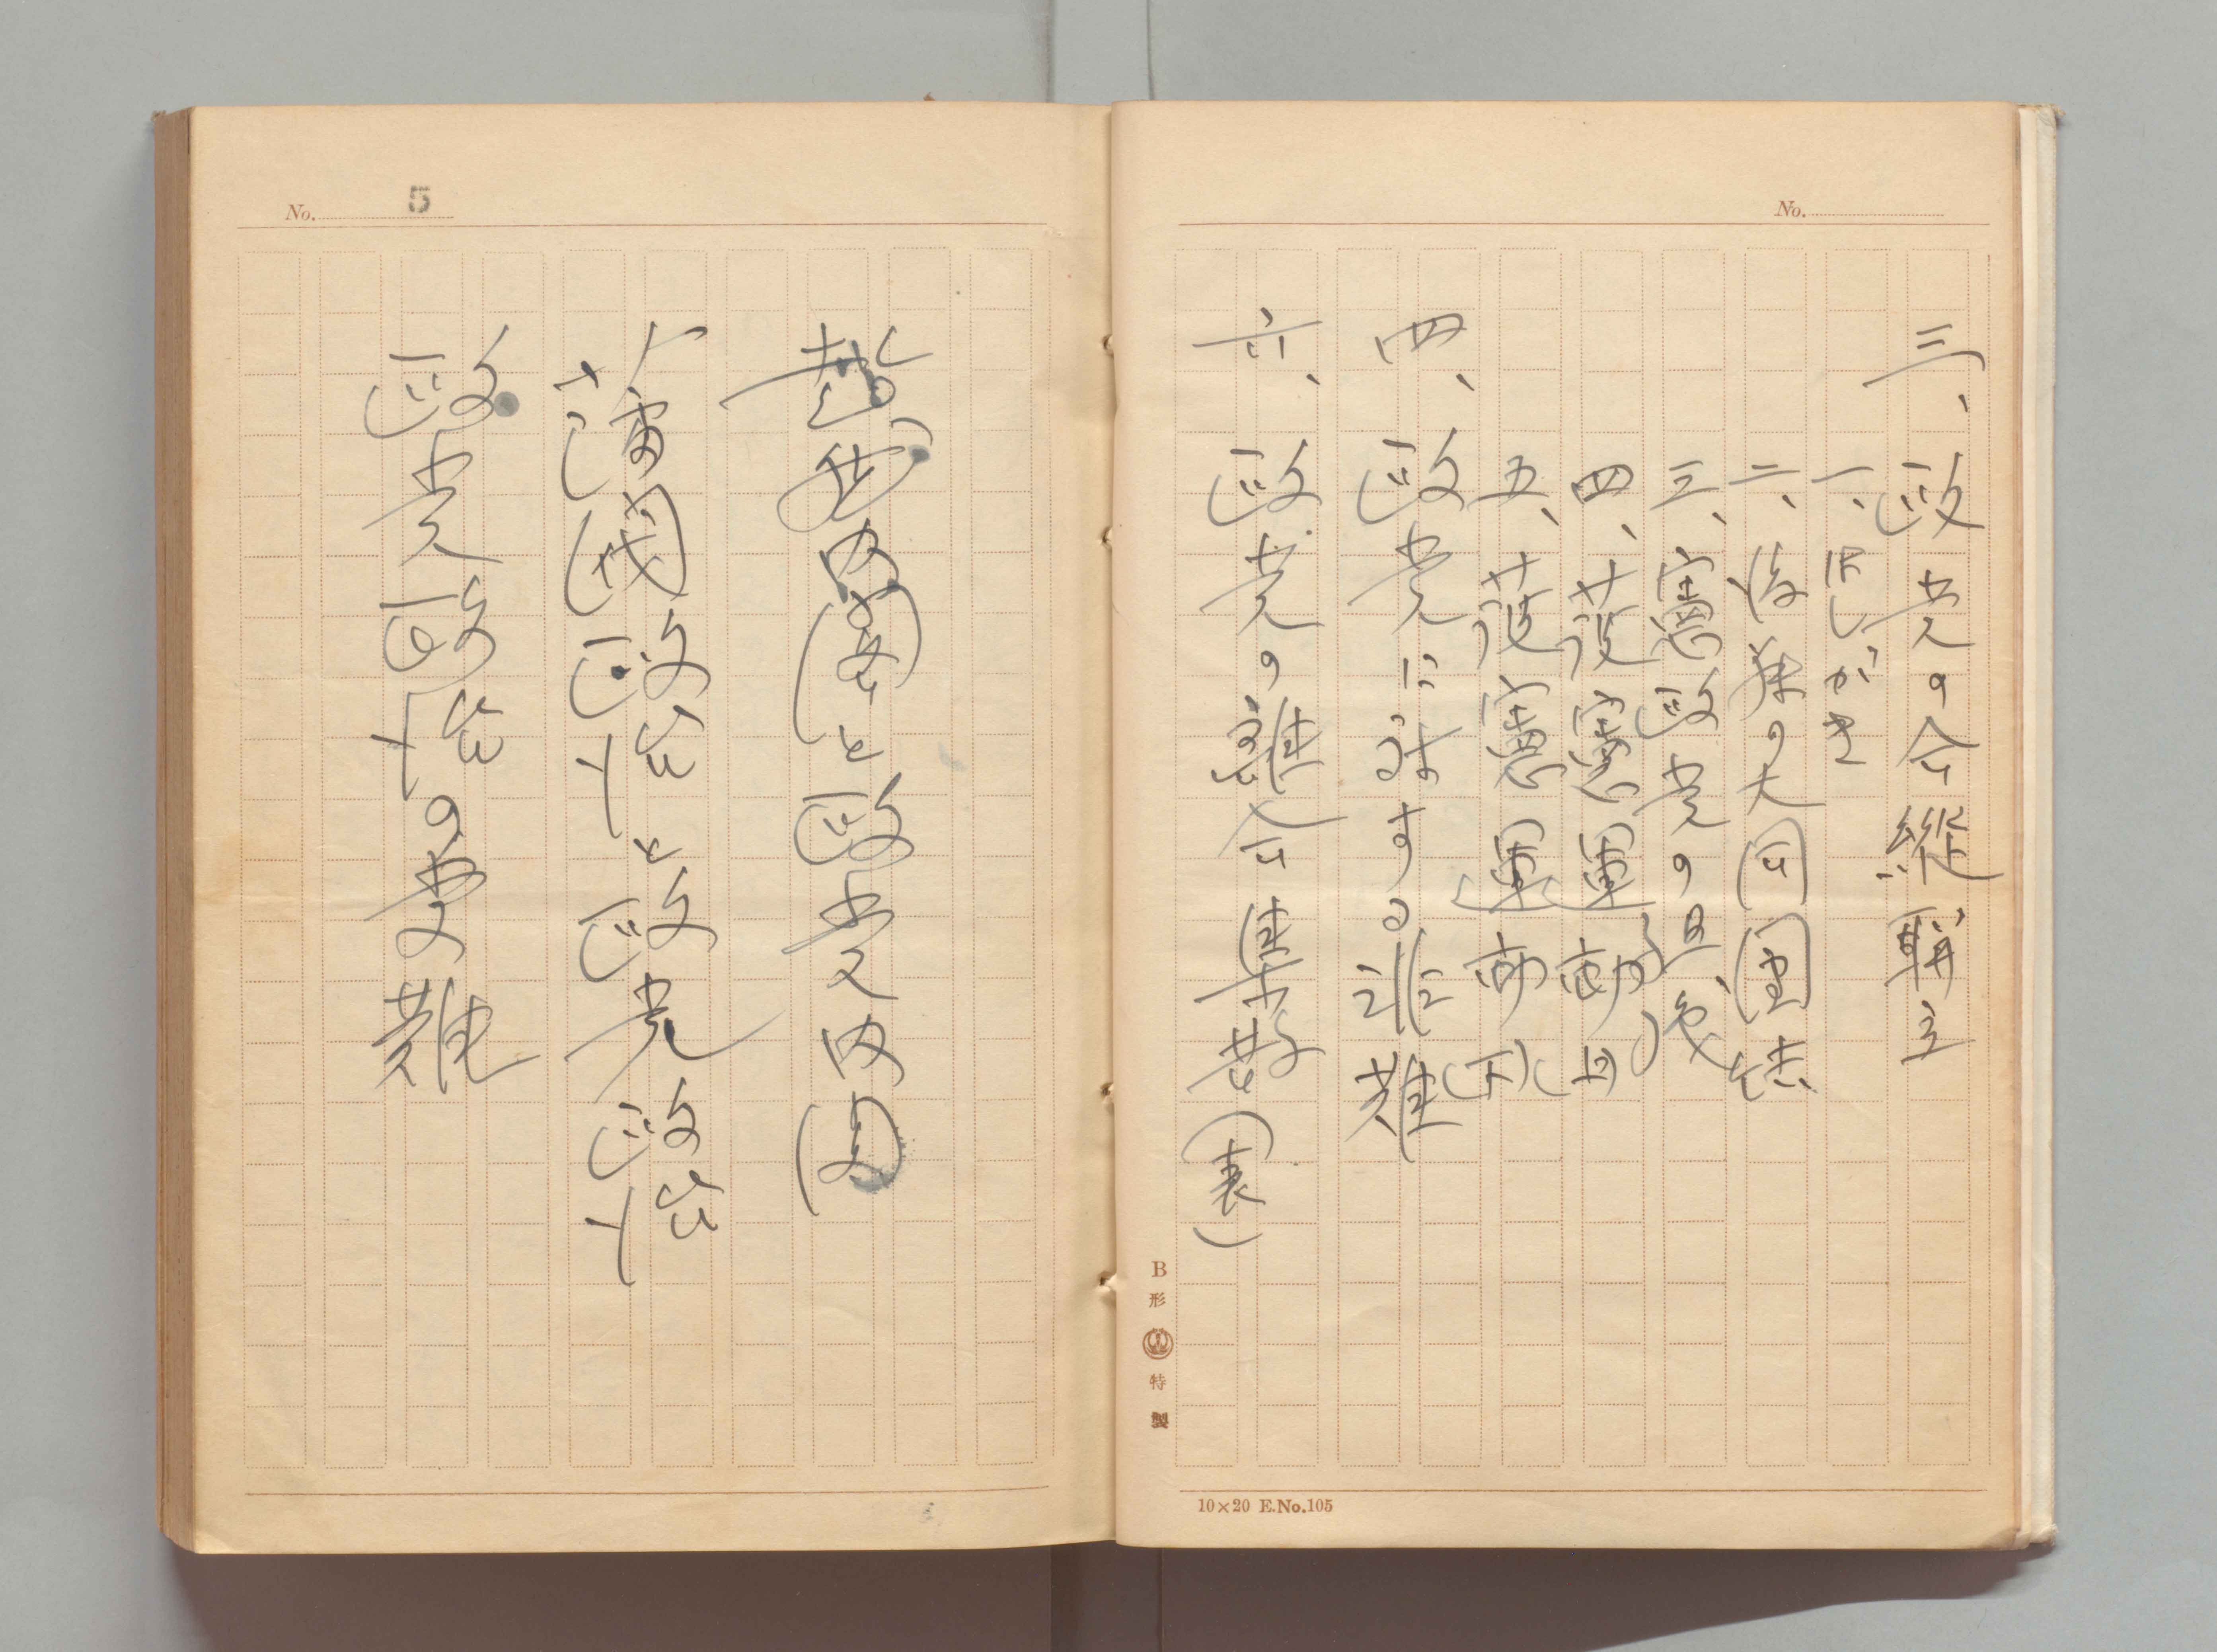 No.
三、政党の合縦聯立
一、はしがき
二、後藤の大同団結
三、憲政党の
四、護憲運動(上)
五、護憲運動(下)
四、政党に対する非難
六、政党の離合集散(表)
B形 特製
10×20 E.No.105
No. 5
超然内閣と政党内閣
藩閥政治と政党政治
政党政治の受難